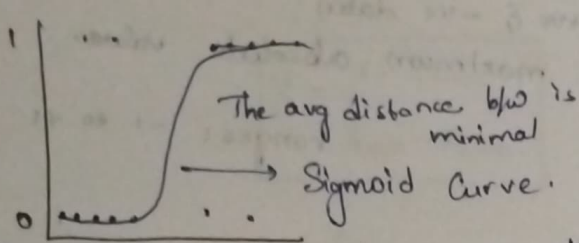 1
The avg distance b/w is
minimal
Sigmoid Curve.
0